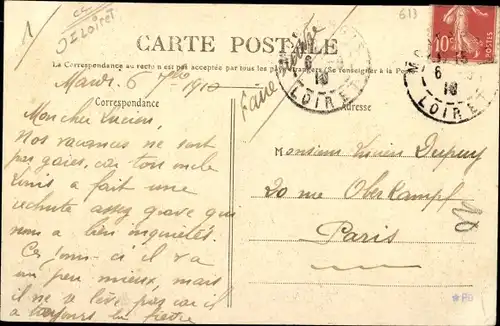 1
CC
D Loiret
613
CARTE POSTALE
La Correspondance au recto n'est pas acceptée par tous les pays étrangers (Se renseigner à la Poste)
Mardi 6 7bre 1910
Faire suivre
Correspondance
Adresse
6
10
LOIRET
10c
POSTES
6
10
LOIRET
Mon cher Lucien,
Nos vacances ne sont
pas gaies, car ton oncle
Louis a fait une
rechute assez grave qui
nous a bien inquiétés.
Ces jours-ci il va
un peu mieux, mais
il ne se lève pas car il
a toujours la fièvre
Monsieur Lucien Dupuy
20 rue Oberkampf
Paris
20